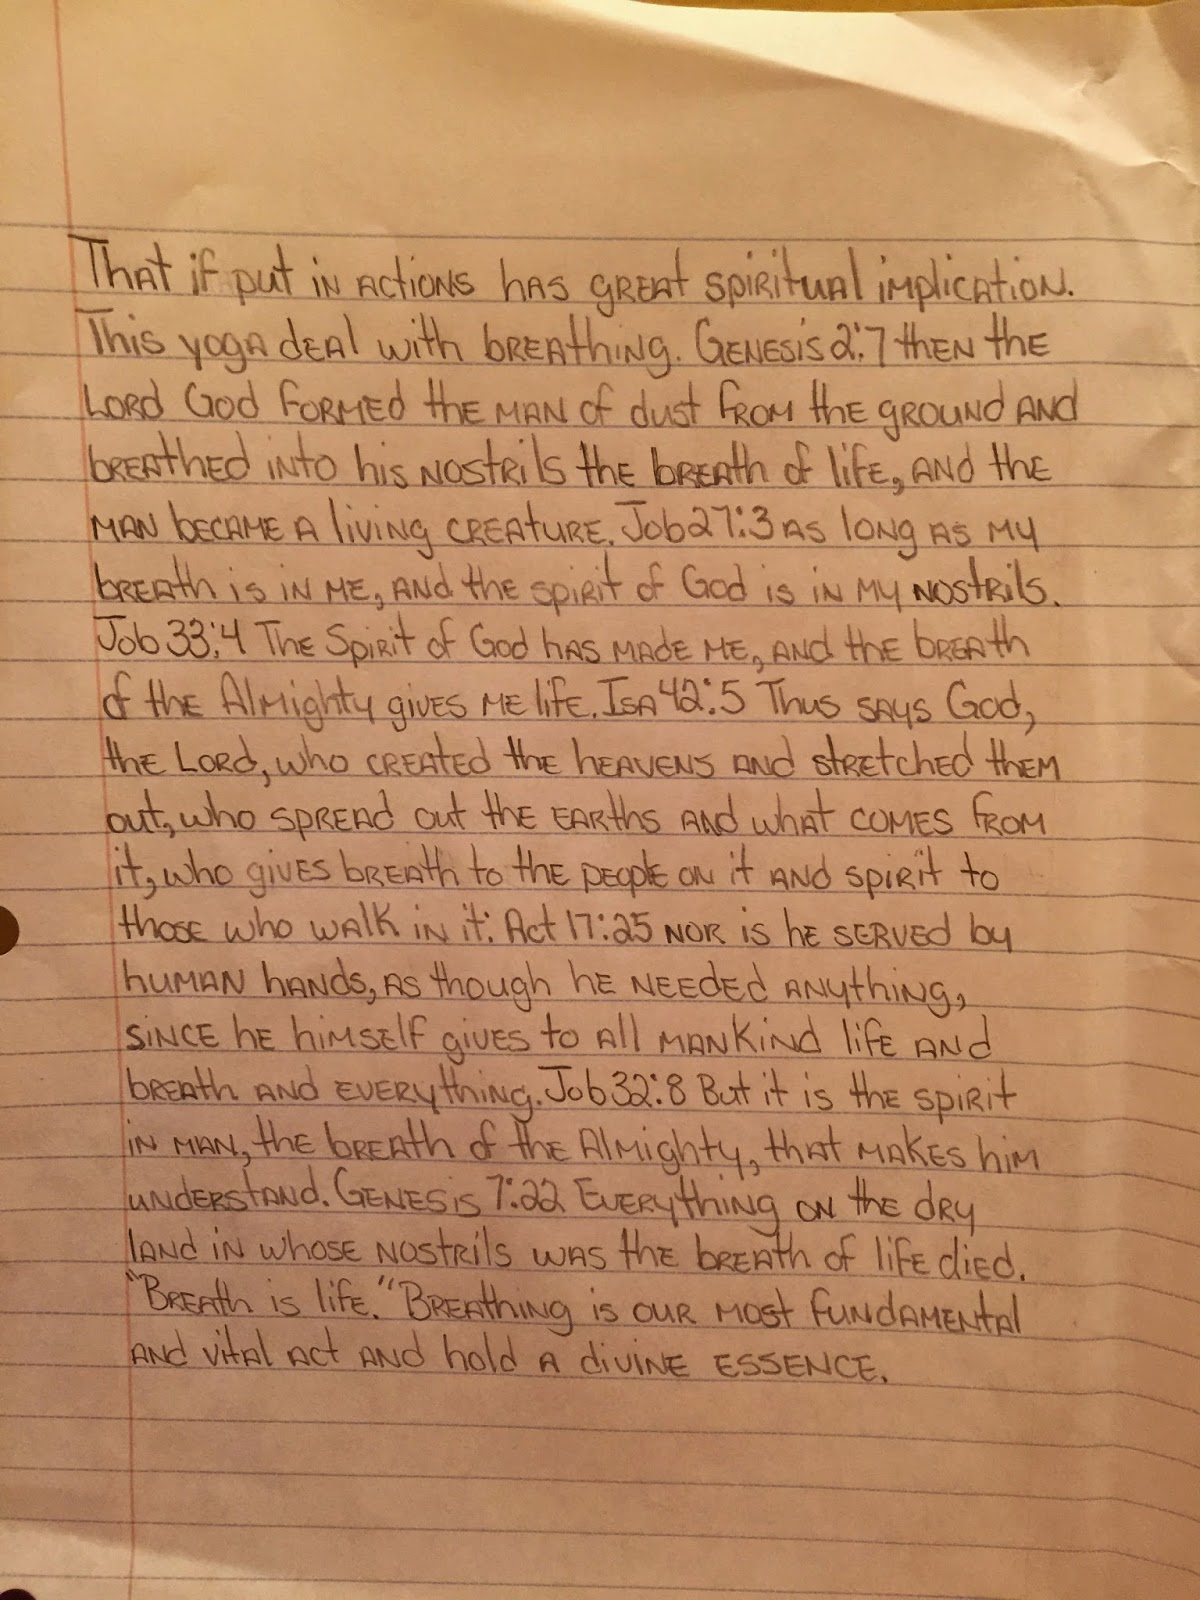 That if put in actions has great spiritual implication.
This yoga deal with breathing. Genesis 2:7 then the
Lord God formed the man of dust from the ground and
breathed into his nostrils the breath of life, and the
man became a living creature. Job 27:3 as long as my
breath is in me, and the spirit of God is in my nostrils.
Job 33:4 The Spirit of God has made me, and the breath
of the Almighty gives me life. Isa 42:5 Thus says God,
the Lord, who created the heavens and stretched them
out, who spread out the earths and what comes from
it, who gives breath to the people on it and spirit to
those who walk in it: Act 17:25 nor is he served by
human hands, as though he needed anything,
since he himself gives to all mankind life and
breath and everything. Job 32:8 But it is the spirit
in man, the breath of the Almighty, that makes him
understand. Genesis 7:22 Everything on the dry
land in whose nostrils was the breath of life died.
"Breath is life." Breathing is our most fundamental
and vital act and hold a divine essence.